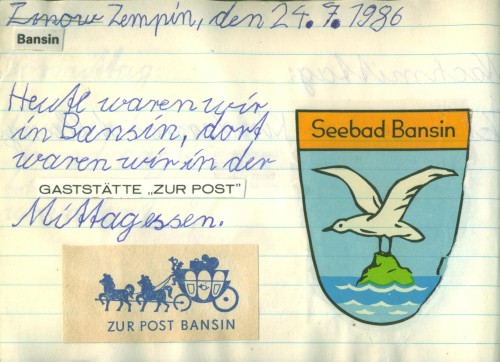 Zempin, den 24. 7. 1986
Bansin
Heute waren wir
in Bansin, dort
waren wir in der
GASTSTÄTTE „ZUR POST"
Mittagessen.
Seebad Bansin
ZUR POST BANSIN